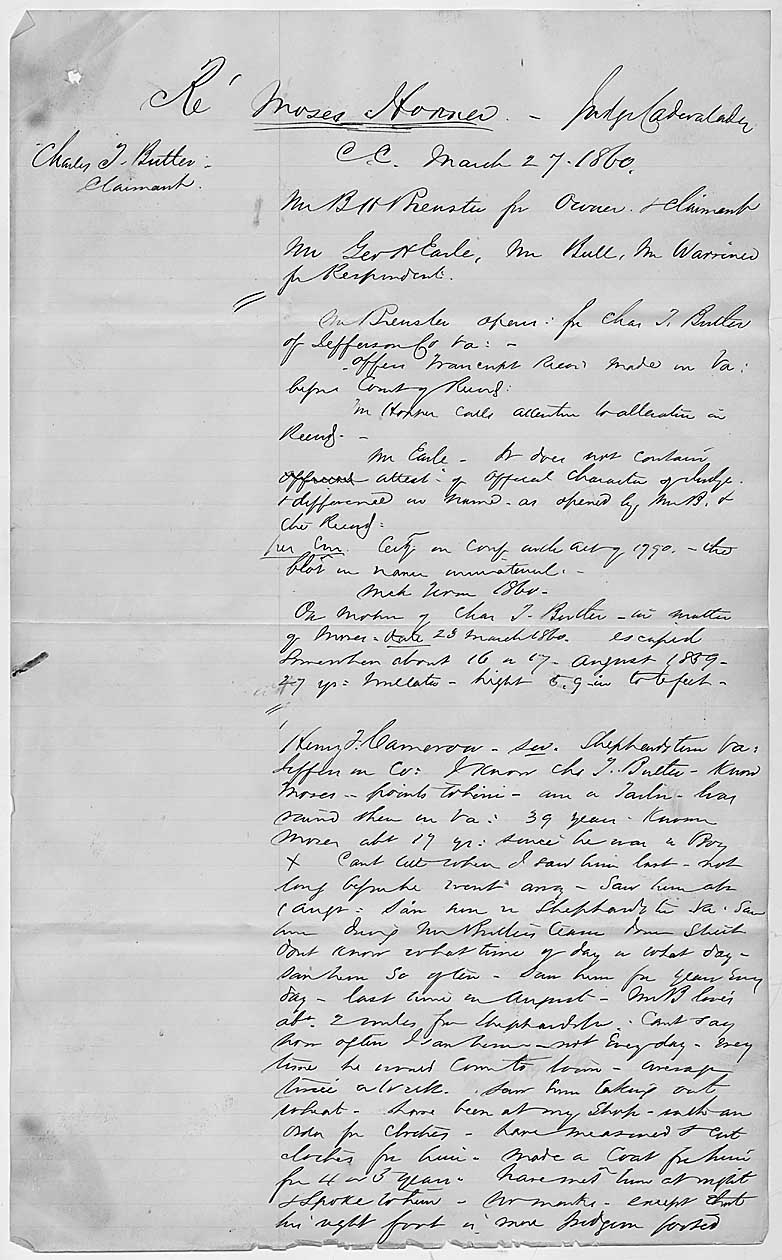 Re Moses Horner. - Judge Cadwalader
Charles T. Butler -
Claimant.
C.C. March 27. 1860.
Mr B H Brewster for Owner & Claimant
Mr Geo H Earle, Mr Bull, Mr Warriner
for Respondent.
Mr Brewster opens: for Chas T. Butler
of Jefferson Co Va: -
offers Transcript Record made in Va:
before Court of Record:
Mr Horner calls attention to alteration in
Record. -
Mr Earle - It does not contain
official attest: of official character of Judge.
& difference in name - as opened by Mr B. &
the Record:
per Cur. in Conf with act of 1790. - the
blot in name immaterial. -
Term 1860 -
On motion of Chas T. Butler - in matter
of Moses - date 23 March 1860. escaped
somewhere about 16 or 17 - August 1859 -
27 yrs: Mullatto - hight 5.9 in to 6 feet -
Henry F. Cameron - sw. Shepherdstown Va:
Jefferson Co: I know Chs T. Butler - Know
Moses - points to him - am a Tailor - was
raised there in Va: 39 years - Known
Moses abt 17 yr: since he was a Boy
X Cant tell when I saw him last - not
long before he went away - Saw him abt
1 Augt: saw him in Shepherdstn Va. Saw
him driving Mr Butlers team down Street
dont know what time of day or what day -
saw him so often - saw him for years every
day - last time in August - Mr B lives
abt. 2 miles fm Shepherdstn. Cant say
how often I saw him - not Every day - Every
time he would Come to town - average
twice a week. saw him taking out
wheat - have been at my Shop - with an
order for clothes - have measured & cut
clothes for him - made a Coat for him
for 4 or 3 years - have met him at night
& spoke to him - no marks - except that
his right foot is more pidgeon footed